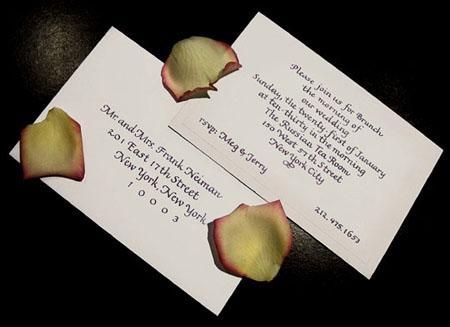 Please join us for Brunch
the morning of
our wedding
Sunday, the twenty-first of January
at ten-thirty in the morning
The Russian Tea Room
150 West 57th Street
New York City
rsvp: Meg & Jerry
212.475.1653
Mr. and Mrs. Frank Neiman
201 East 17th Street
New York, New York
10003